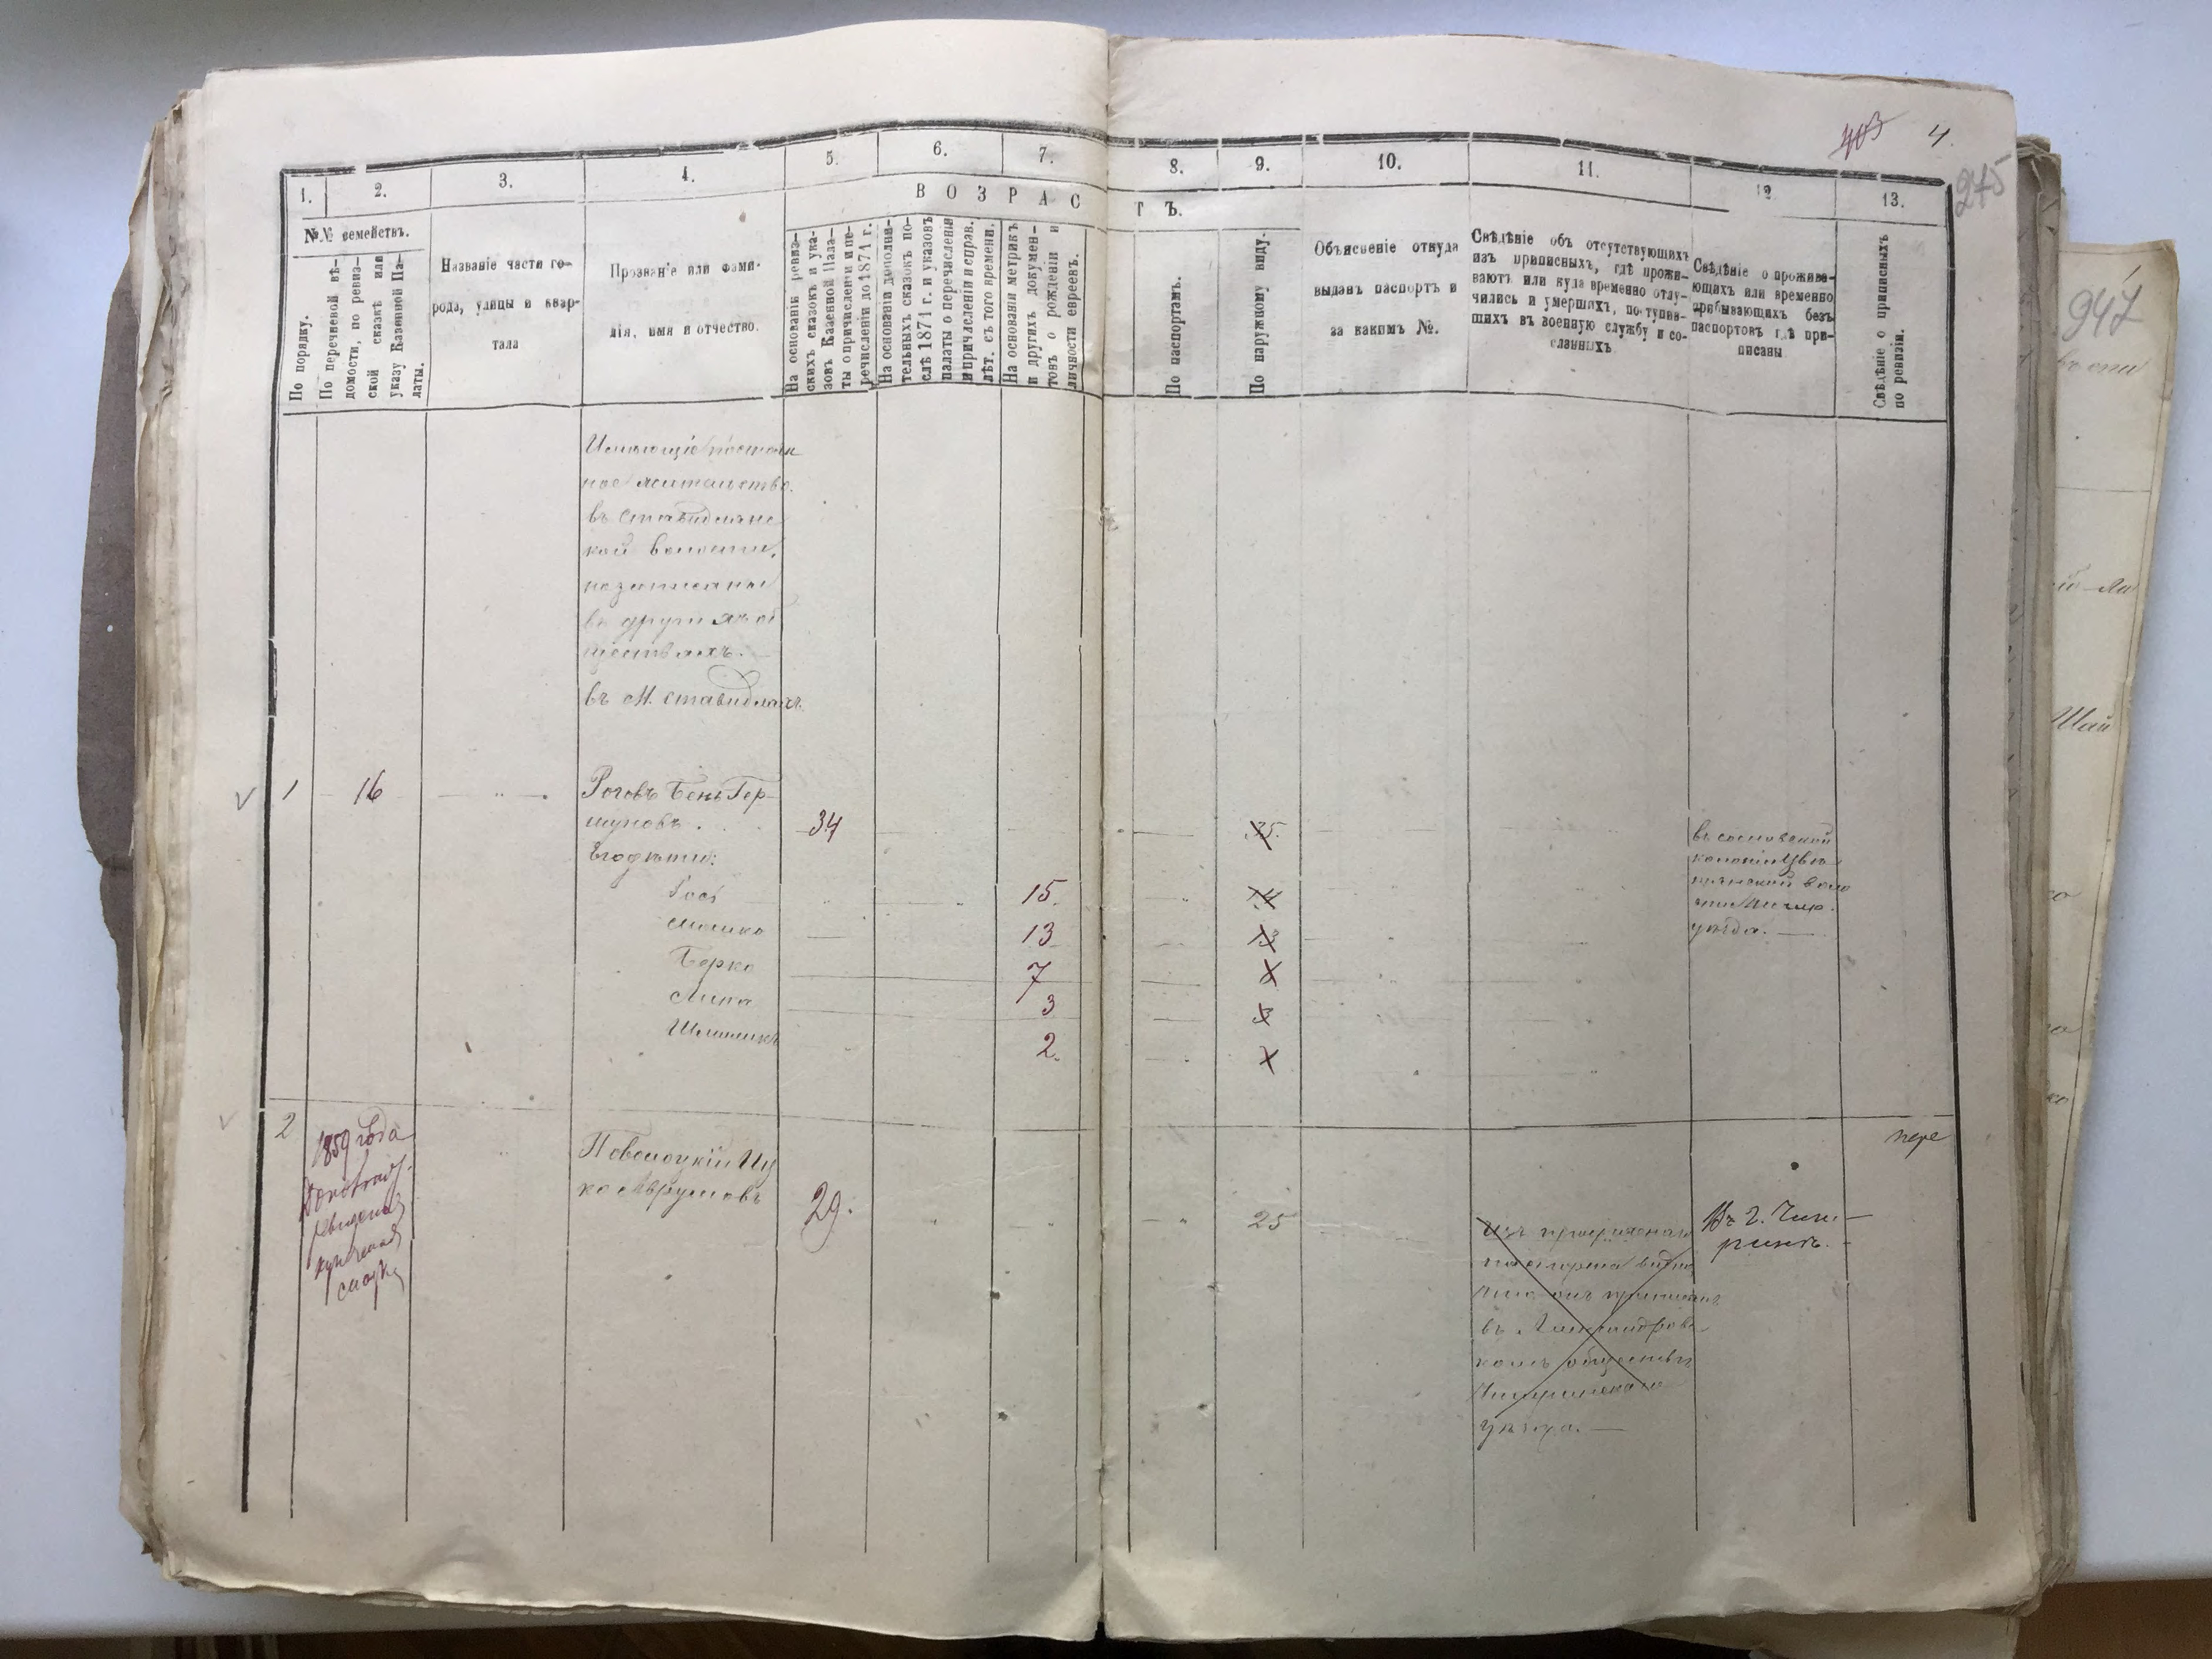 403 4.
245
1. 2. 3. 4. 5. 6. 7. 8. 9. 10. 11. 12 13.
В О З Р А С Т Ъ.
№№ семействъ.
По порядку.
По перечневой вѣ-
домости, по ревиз-
ской сказкѣ или
указу Казенной Па-
латы.
Названіе части го-
рода, улицы и квар-
тала
Прозваніе или фами-
лія, имя и отчество.
На основаніи ревиз-
скихъ сказокъ и ука-
зовъ Казенной Пала-
ты о причисленіи и пе-
речисленіи до 1871 г.
На основаніи дополни-
тельныхъ сказокъ по-
слѣ 1871 г. и указовъ
палаты о перечисленіи
и причисленіи и справ.
лѣт. съ того времени.
На основаніи метрикъ
и другихъ докумен-
товъ о рожденіи и
личности евреевъ.
По паспортамъ.
По наружному виду.
Объясненіе откуда
выданъ паспортъ и
за какимъ №.
Свѣдѣніе объ отсутствующихъ
изъ приписныхъ, гдѣ прожи-
ваютъ или куда временно отлу-
чились и умершихъ, поступив-
шихъ въ военную службу и со-
сланныхъ
Свѣдѣніе о прожива-
ющихъ или временно
прибывающихъ безъ
паспортовъ гдѣ при-
писаны
Свѣдѣніе о приписныхъ
по ревизіи.
Имѣющіе постоян
ное жительство
въ Ставидлянс
кой волости,
незаписаны
въ другихъ об
ществахъ.
въ М. Ставидлахъ
1 16 Роговъ Бень Гер-
шуновъ. 34 35.
Его дѣти:
15. 14
Мошко 13 13
Берко 7
Липа 3 3
2.
въ сосновской
колоніи
уѣзда.
2 1859 года
Поволоцкій Иц
ко Аврумовъ 29. 25
пере
Изъ
паспорта видно
что онъ приписанъ
въ Александровс
комъ обществѣ
Чигиринскаго
уѣзда.
Въ г. Чиги-
ринѣ.
947
Шай